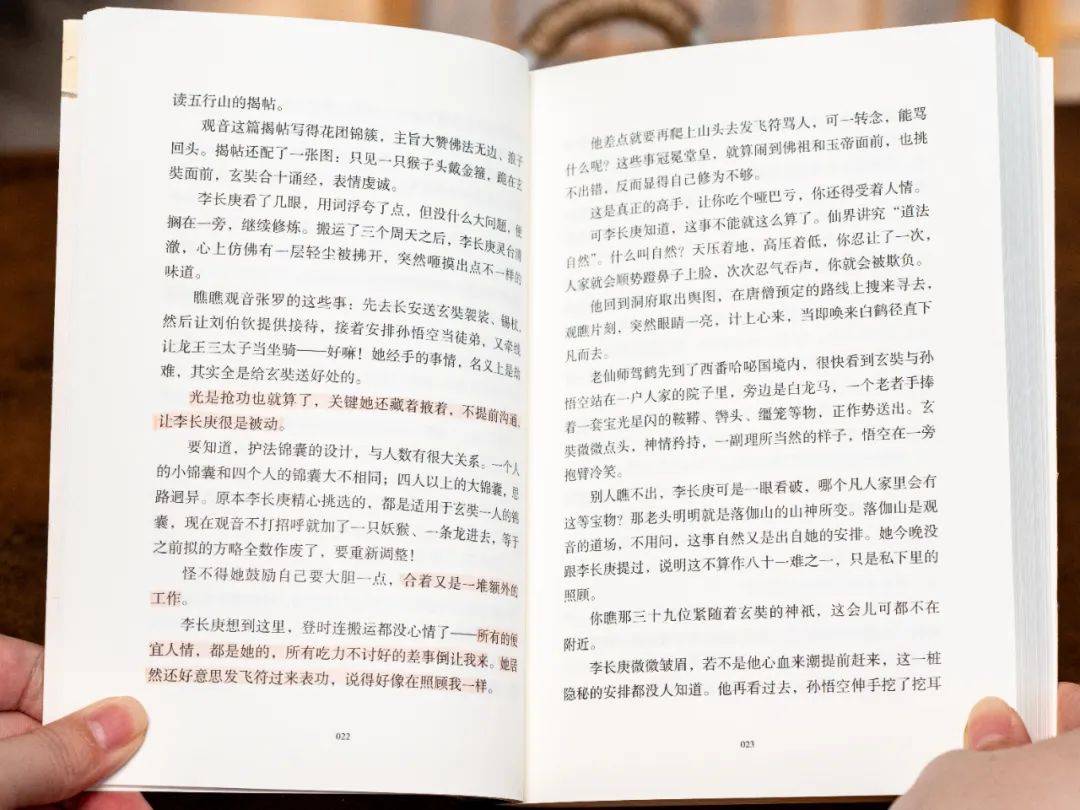 读五行山的揭帖。
观音这篇揭帖写得花团锦簇，主旨大赞佛法无边、浪子
回头。揭帖还配了一张图：只见一只猴子头戴金箍，跪在玄
奘面前，玄奘合十诵经，表情虔诚。
李长庚看了几眼，用词浮夸了点，但没什么大问题，便
搁在一旁，继续修炼。搬运了三个周天之后，李长庚灵台清
澈，心上仿佛有一层轻尘被拂开，突然咂摸出点不一样的
味道。
瞧瞧观音张罗的这些事：先去长安送玄奘袈裟、锡杖，
然后让刘伯钦提供接待，接着安排孙悟空当徒弟，又牵线
让龙王三太子当坐骑——好嘛！她经手的事情，名义上是给
难，其实全是给玄奘送好处的。
光是抢功也就算了，关键她还藏着掖着，不提前沟通，
让李长庚很是被动。
要知道，护法锦囊的设计，与人数有很大关系。一个人
的小锦囊和四个人的锦囊大不相同；四人以上的大锦囊，思
路迥异。原本李长庚精心挑选的，都是适用于玄奘一人的锦
囊，现在观音不打招呼就加了一只妖猴、一条龙进去，等于
之前拟的方略全数作废了，要重新调整！
怪不得她鼓励自己要大胆一点，合着又是一堆额外的
工作。
李长庚想到这里，登时连搬运都没心情了——所有的便
宜人情，都是她的，所有吃力不讨好的差事倒让我来。她居
然还好意思发飞符过来表功，说得好像在照顾我一样。
022
他差点就要再爬上山头去发飞符骂人，可一转念，能骂
什么呢？这些事冠冕堂皇，就算闹到佛祖和玉帝面前，也挑
不出错，反而显得自己修为不够。
这是真正的高手，让你吃个哑巴亏，你还得受着人情。
可李长庚知道，这事不能就这么算了。仙界讲究“道法
自然”。什么叫自然？天压着地，高压着低，你忍让了一次，
人家就会顺势蹬鼻子上脸，次次忍气吞声，你就会被欺负。
他回到洞府取出舆图，在唐僧预定的路线上搜来寻去，
观瞧片刻，突然眼睛一亮，计上心来，当即唤来白鹤径直下
凡而去。
老仙师驾鹤先到了西番哈咇国境内，很快看到玄奘与孙
悟空站在一户人家的院子里，旁边是白龙马，一个老者手捧
着一套宝光星闪的鞍鞯、辔头、缰笼等物，正作势送出。玄
奘微微点头，神情矜持，一副理所当然的样子，悟空在一旁
抱臂冷笑。
别人瞧不出，李长庚可是一眼看破，哪个凡人家里会有
这等宝物？那老头明明就是落伽山的山神所变。落伽山是观
音的道场，不用问，这事自然又是出自她的安排。她今晚没
跟李长庚提过，说明这不算作八十一难之一，只是私下里的
照顾。
你瞧那三十九位紧随着玄奘的神祇，这会儿可都不在
附近。
李长庚微微皱眉，若不是他心血来潮提前赶来，这一桩
隐秘的安排都没人知道。他再看过去，孙悟空伸手挖了挖耳
023